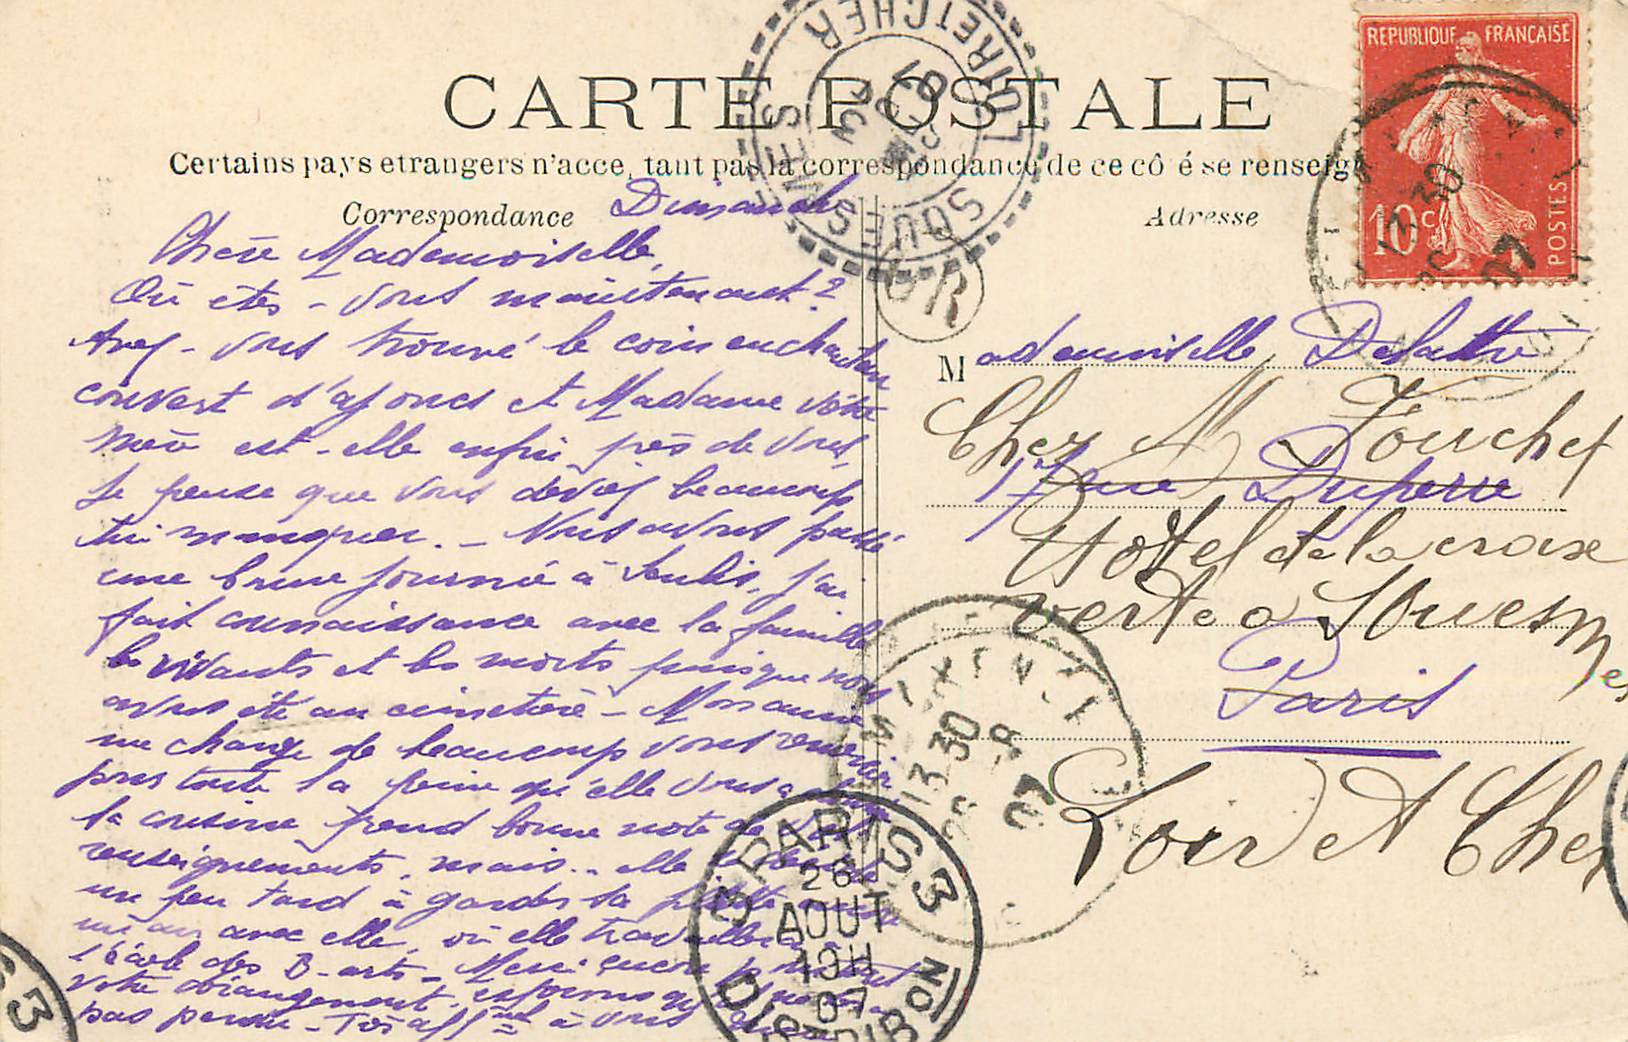 CARTE POSTALE
Certains pays etrangers n'acce, tant pas la correspondance de ce cô é se renseig
Correspondance
Adresse
Dimanche
Chère Mademoiselle,
Où êtes-vous maintenant?
Avez-vous trouvé le coin enchanteur
couvert d'ajoncs et Madame votre
mère est-elle enfin près de vous,
Je pense que vous deviez beaucoup
lui manquer. - Nous avons passé
une bonne journée à Senlis, j'ai
fait connaissance avec la famille
les vivants et les morts puisque nous
avons été au cimetière - Mon amie
me charge de beaucoup vous remercier
pour toute la peine qu'elle vous a
la cousine prend bonne note de vos
renseignements, mais.. elle
un peu tard à garder sa
un an avec elle, où elle travaillera à
l'école des B-arts. Merci encore
votre dérangement, espérons
pas perdu - Très aff.ment à vous
M ademoiselle Delattre
Chez M Fouchet
17 rue Duperré
Hotel de la croix
verte a Souesmes
Paris
Loir et Cher
REPUBLIQUE FRANÇAISE
10 c
POSTES
SOUESMES
LOIR ET CHER
13 30
07
13 30
07
PARIS 3
26
AOUT
10H
07
DISTRIBON
3